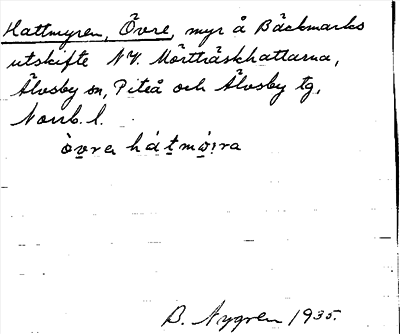 Hattmyren, Övre, myr å Bäckmarks
utskifte NV. Mörtträskhattarna,
Älvsby sn, Piteå och Älvsby tg,
Norrb. l.
B. Nygren 1935.